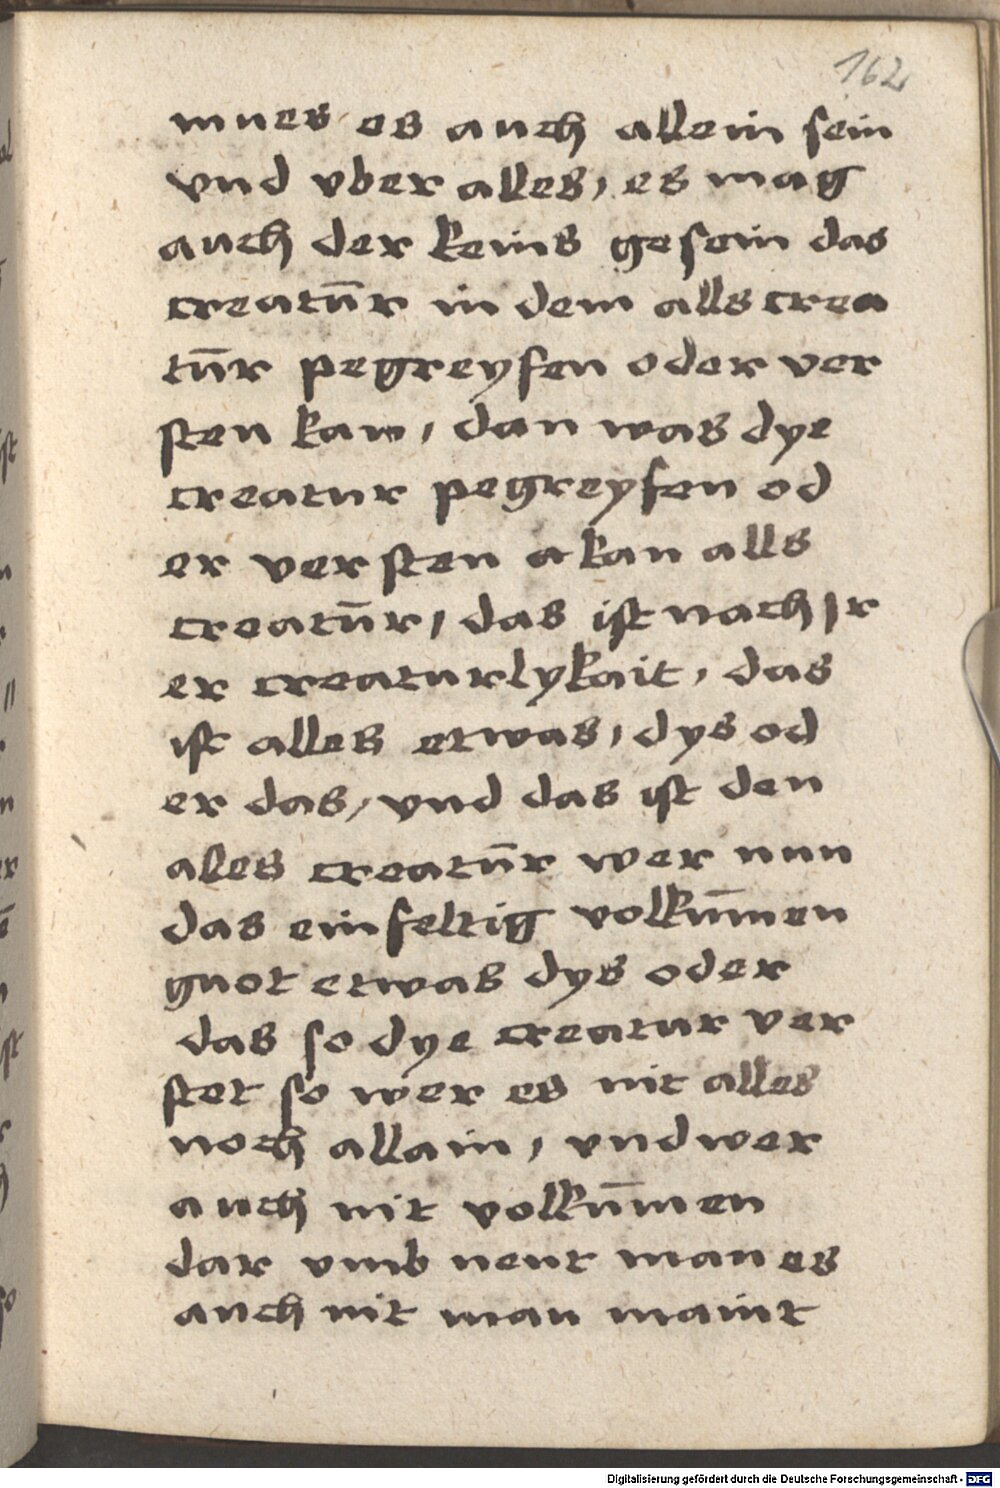 162
mues es auch allein sein
vnd vber alles, es mag
auch der keins gesein das
creatūr in dem alls crea
tūr pegreyfen oder ver
sten kan, dan was dye
creatur pegreyfen od
er versten a kan alls
creatūr, das ist nach jr
er creaturlykait, das
ist alles etwas, dys od
er das, vnd das ist den
ales creatūr wer nun
das einfeltig volkūmen
guot etwas dys oder
das so dye creatur ver
stet so wer es nit alles
noch allain, vnd wer
auch nit volkūmen
dar vmb nent man es
auch nit man maint
Digitalisierung gefördert durch die Deutsche Forschungsgemeinschaft - DFG